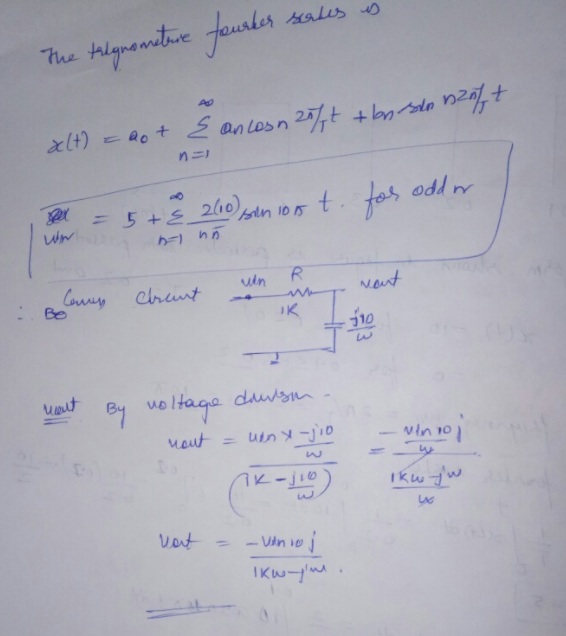 The trignometric fourier series is
x(t) = a0 + ∞ Σ n=1 an cos n 2π/T t + bn sin n 2π/T t
Vin = 5 + ∞ Σ n=1 2(10)/nπ sin 10π t . for odd n
∴ Given Circuit vin R vout
1K -j10/w
vout By voltage division -
vout = vin x -j10/w / (1K - j10/w) = -vin10j/w / 1Kw-jw/w
Vout = -vin10j / 1Kw-jw .